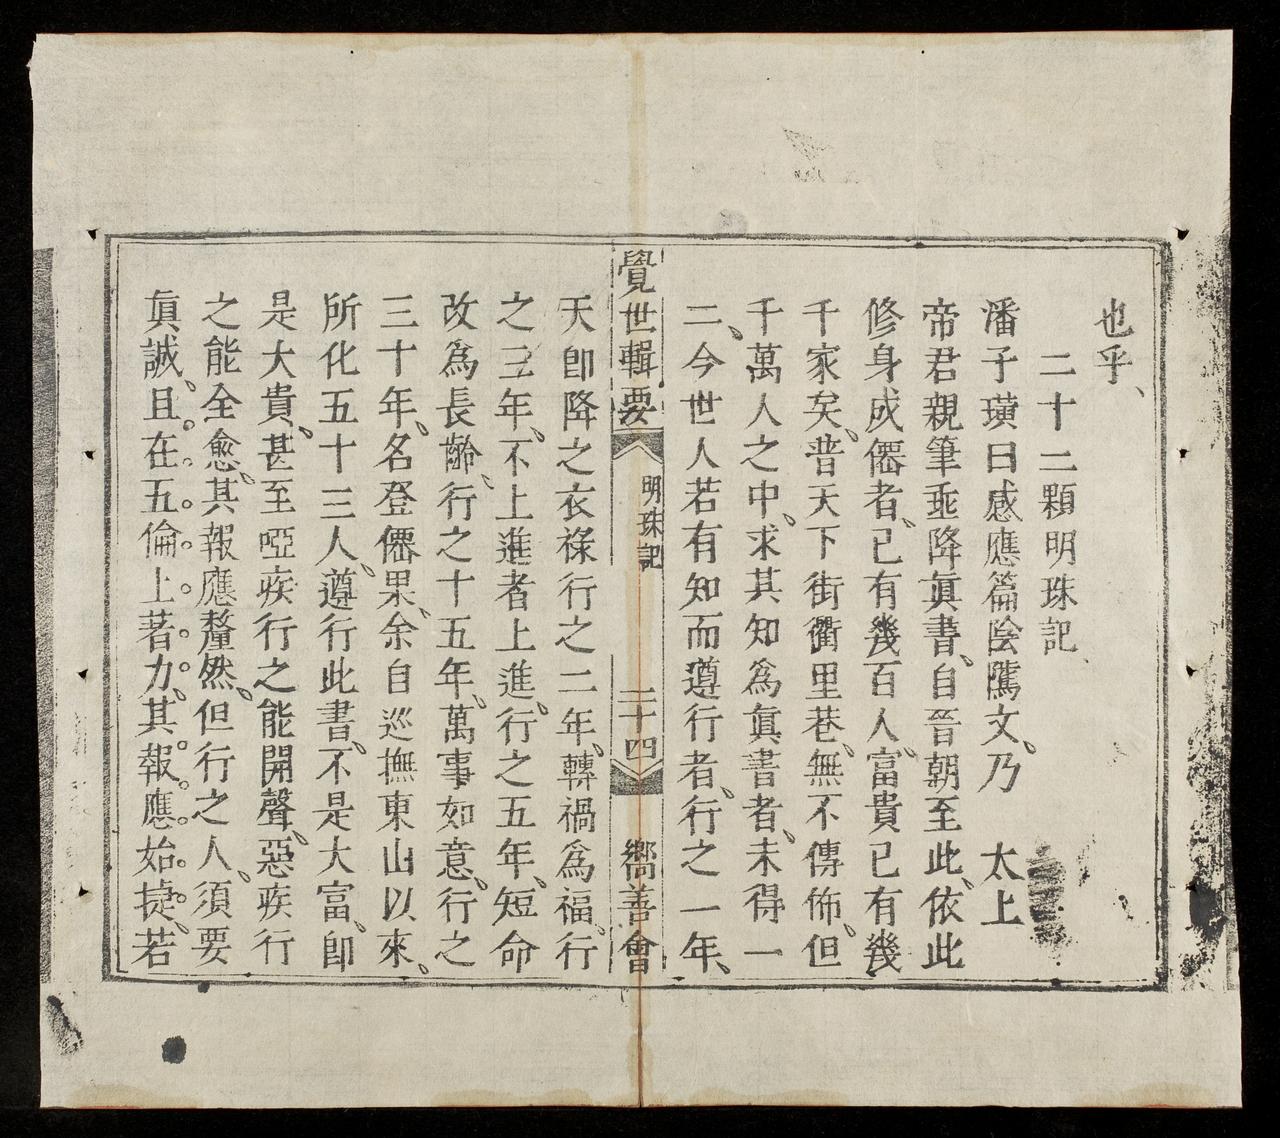 也乎、
二十二顆明珠記
潘子璜曰感應篇陰隲文、乃　太上
帝君親筆乖降眞書、自晉朝至此、依此
修身成僊者、已有幾百人、富貴已有幾
千家矣、普天下街衢里巷、無不傳佈、但
千萬人之中、求其知爲眞書者、未得一
二、今世人若有知而遵行者、行之一年、
覺世輯要
明珠記
二十四
嚮善會
天卽降之衣祿行之二年、轉禍爲福、行
之三年、不上進者上進、行之五年、短命
改爲長齡、行之十五年、萬事如意、行之
三十年、名登僊果、余自巡撫東山以來、
所化五十三人、遵行此書、不是大富、卽
是大貴、甚至啞疾行之能開聲、惡疾行
之能全愈、其報應釐然、但行之人、須要
眞誠、且在五倫上著力、其報應始捷、若